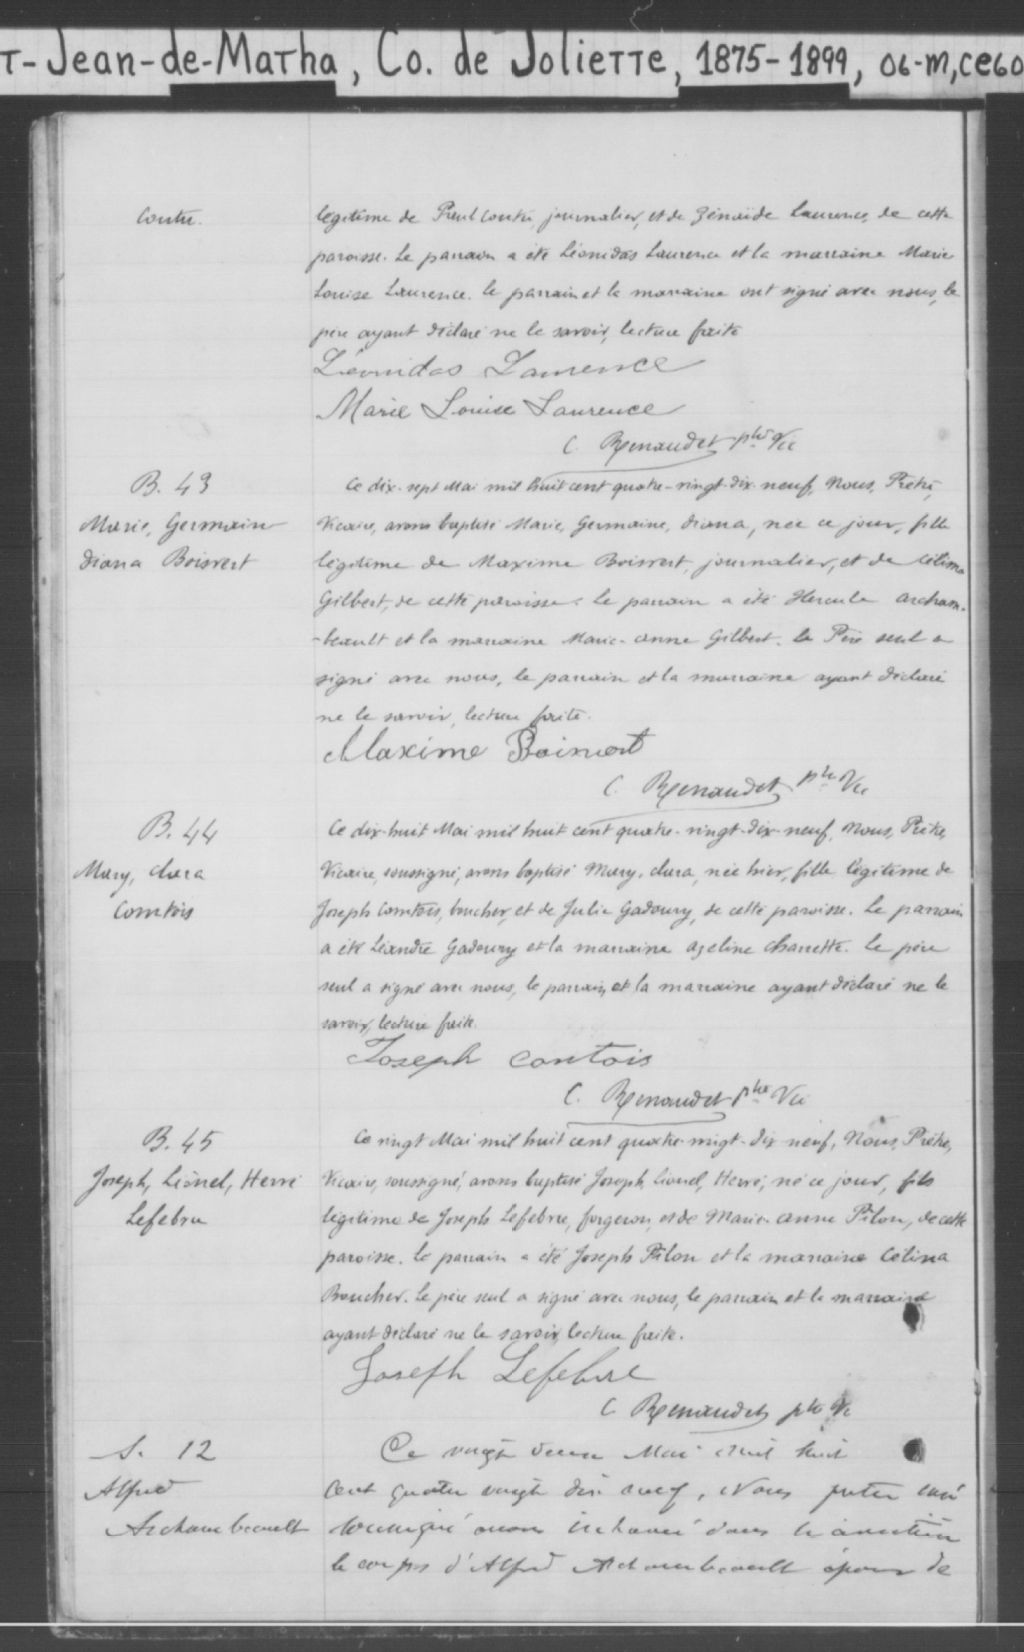 T-Jean-de-Matha, Co. de Joliette, 1875-1899, 06-M,CE60
Contu.
légitime de Contu, journalier, et de Zénaïde Laurence, de cette
paroisse. Le parrain a été Léonidas Laurence et la marraine Marie
Louise Laurence. le parrain et la marraine ont signé avec nous, le
père ayant déclaré ne le savoir, lecture faite
Léonidas Laurence
Marie Louise Laurence
C. Renaudet ptre Vic
B. 43
Marie, Germain
Diana Boisvert
Ce dix-sept Mai mil huit cent quatre-vingt-dix-neuf, Nous, Prêtre,
Vicaire, avons baptisé Marie, Germaine, Diana, née ce jour, fille
légitime de Maxime Boisvert, journalier, et de Célima
Gilbert, de cette paroisse. le parrain a été Hercule Archam-
-beault et la marraine Marie-anne Gilbert. le Père seul a
signé avec nous, le parrain et la marraine ayant déclaré
ne le savoir, lecture faite.
Maxime Boisvert
C. Renaudet ptre Vic
B. 44
Mary, Clara
Comtois
Ce dix-huit Mai mil huit cent quatre-vingt-dix-neuf, Nous, Prêtre,
Vicaire, soussigné, avons baptisé Mary, Clara, née hier, fille légitime de
Joseph Comtois, boucher, et de Julie Gadoury, de cette paroisse. Le parrain
a été Léandre Gadoury et la marraine Azeline Charette. le père
seul a signé avec nous, le parrain et la marraine ayant déclaré ne le
savoir, lecture faite.
Joseph Contois
C. Renaudet ptre Vic
B. 45
Joseph, Lionel, Hervé
Lefebvre
Ce vingt Mai mil huit cent quatre-vingt-dix neuf, Nous, Prêtre,
Vicaire, soussigné, avons baptisé Joseph, Lionel, Hervé, né ce jour, fils
légitime de Joseph Lefebvre, forgeron, et de Marie-anne Pilon, de cette
paroisse. le parrain a été Joseph Pilon et la marraine Célina
Boucher. le père seul a signé avec nous, le parrain et la marraine
ayant déclaré ne le savoir, lecture faite.
Joseph Lefebvre
C Renaudet ptre Vic
S. 12
Alfred
Archambeault
Ce vingt deux Mai mil huit
Cent quatre vingt dix neuf, Nous prêtre curé
soussigné avons inhumé dans le cimetière
le corps d'Alfred Archambeault époux de